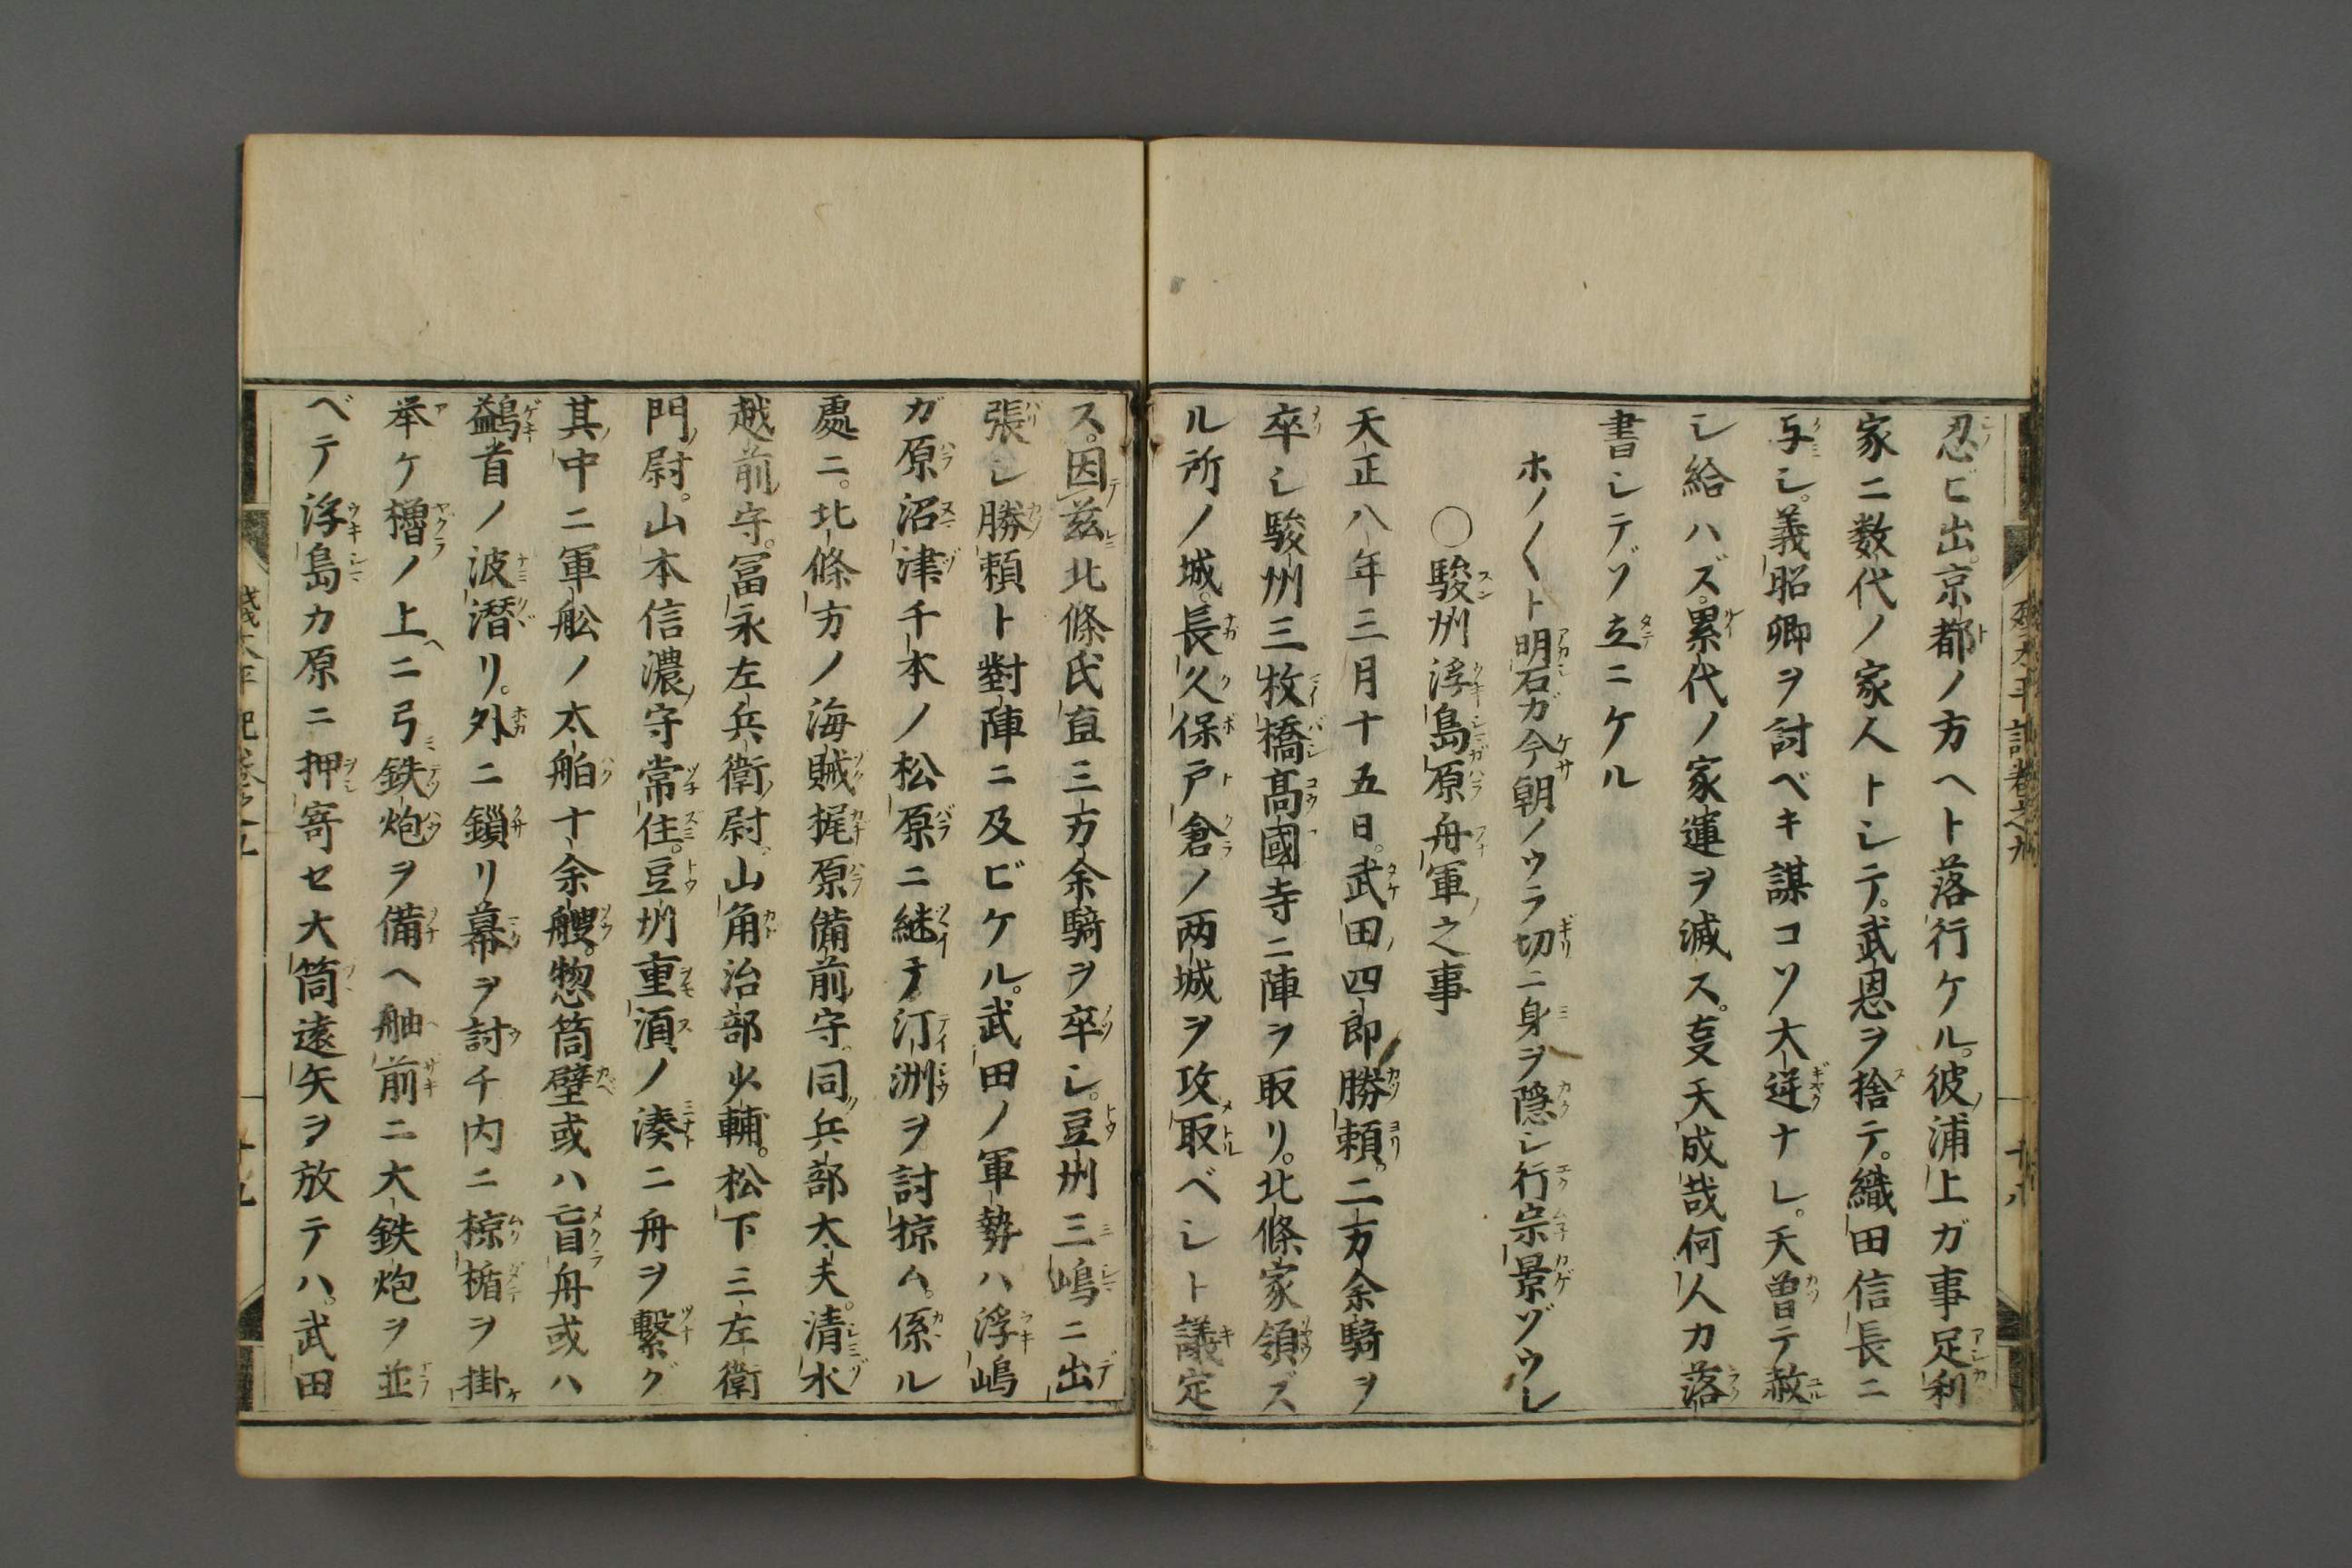 忍ビ出。京都ノ方ヘト落行ケル。彼浦上ガ事足利
家ニ数代ノ家人トシテ。武恩ヲ捨テ。織田信長ニ
与シ。義昭卿ヲ討ベキ謀コソ大逆ナレ。天曽テ赦
シ給ハズ。累代ノ家運ヲ滅ス。夭成哉何人カ落
書シテゾ立ニケル
ホノ〱ト明石ガ今朝ノウラ切ニ身ヲ隠シ行宗景ヅウレ
〇駿州浮島原舟軍之事
天正八年三月十五日。武田四郎勝頼。二万余騎ヲ
卒シ駿州三枚橋高國寺ニ陣ヲ取リ。北條家領ズ
ル所ノ城。長久保戸倉ノ両城ヲ攻取ベシト議定
ス。因茲北條氏直三万余騎ヲ卒シ。豆州三嶋ニ出
張シ勝頼ト對陣ニ及ビケル。武田ノ軍勢ハ浮嶋
ガ原沼津千本ノ松原ニ継テ汀洲ヲ討掠ム。係ル
處ニ。北條方ノ海賊梶原備前守。同兵部大夫。清水
越前守。冨永左兵衛尉。山角治部少輔。松下三左衛
門尉。山本信濃守常住。豆州重湏ノ湊ニ舟ヲ繋グ
其中ニ軍舩ノ太舶十余艘。惣筒壁或ハ盲舟或ハ
鷁首ノ波潜リ。外ニ鎖リ幕ヲ討チ内ニ椋楯ヲ掛
举ケ櫓ノ上ニ弓鉄炮ヲ備ヘ舳前ニ大鉄炮ヲ並
ベテ浮島カ原ニ押寄セ大筒遠矢ヲ放テハ。武田